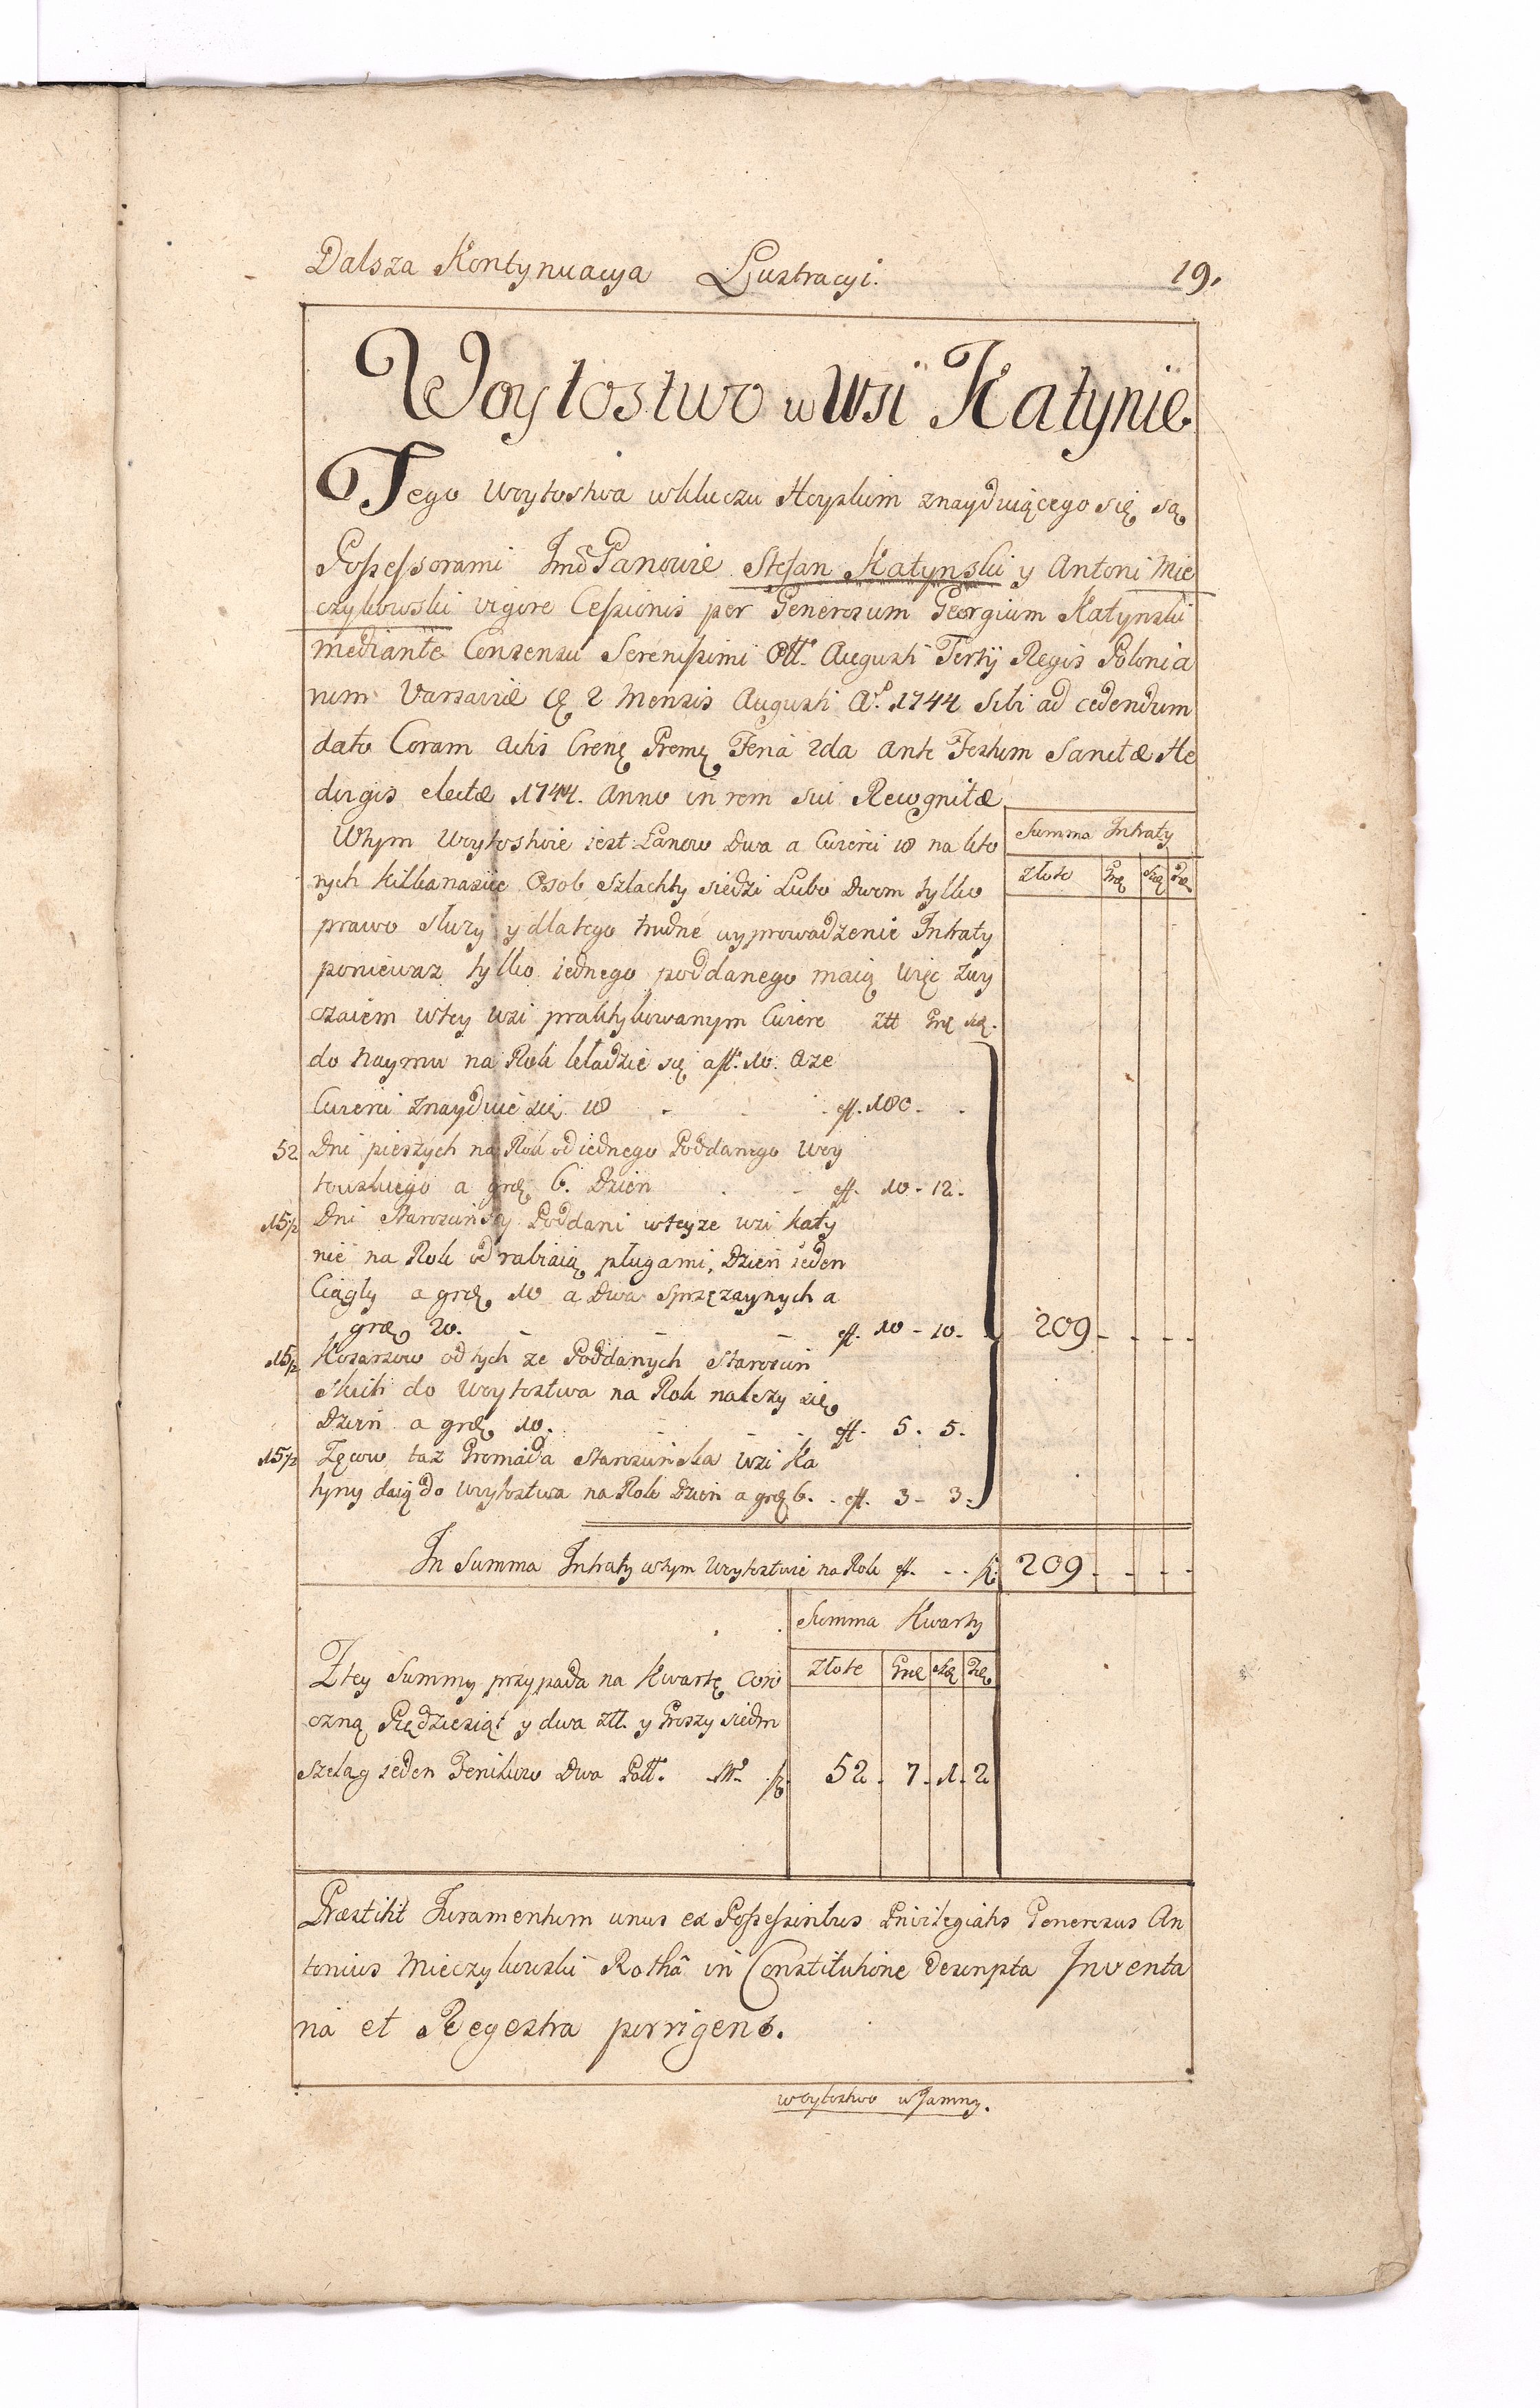 Dalsza Kontynuacya Lustracyi. 19.
Woytostwo w Wsi Katynie.
Tego Woytostwa w kluczu Hoyskim znayduiącego się są
Possessorami Imć Panowie Stefan Katynski y Antoni Mie
czykowski vigore Cessionis per Generosum Georgium Katynski
mediante Consensu Serenissimi Ott. Augusti Tertij Regis Polonia
rum Varsaviæ 2 Mensis Augusti Aº. 1744 sibi ad cedendum
dato Coram Actis Feria 2da ante Festum Sanctæ He
dvigis electæ 1744. Anno in rem sui Recognitæ
W tym Woytostwie iest Łanow Dwa a Cwierci 18 na kto
rych kilkanascie Osob Szlachty siedzi Lubo Dwom tylko
prawo słuzy y dla tego trudne wyprowadzenie Intraty
poniewaz tylko iednego poddanego maią więc zwy
czaiem w tey wsi praktykowanym Cwierc Ztt Grę Szę.
do Naymu na Rok kładzie się a ff. 10. a ze
Cwierci znayduie się 18 ff. 180.
Summa Intraty
złote Grę Szę
52 Dni pieszych na Rok od iednego Poddanego Woy
towskiego a grę. 6. Dzien ff. 10 - 12.
15/2 Dni Staroscińscy Poddani w teyze wsi Katy
nie na Rok odrabiaią pługami, Dzien ieden
Ciągły a grę 10 a Dwa Sprzęzaynych a
grę 20. ff. 10 - 10. 209
15/2 Kosarzow od tych ze Poddanych Starosciń
skich do Woytostwa na Rok nalezy się
Dzień a grę 10. ff. 5. 5.
15/2 Zęcow taz Gromada Starościńska Wsi Ka
tyny daią do Woytostwa na Rok Dzien a grę 6. ff. 3 - 3.
In Summa Intraty w tym Woytostwie na Rok ff. 209
Summa Kwarty
złote Grę Szę
Z tey Summy przypada na Kwartę Coro
czną Pięćdziesiąt y dwa ztt. y Groszy siedm
szeląg ieden Fenikow Dwa Poll. 52. 7. 1. 2
Præstitit Iuramentum unus ex Possessoribus Privilegiatis Generosus An
tonius Mieczykowski Rothâ in Constitutione descripta Inventa
ria et Regestra porrigens.
woytostwo w Jamny.